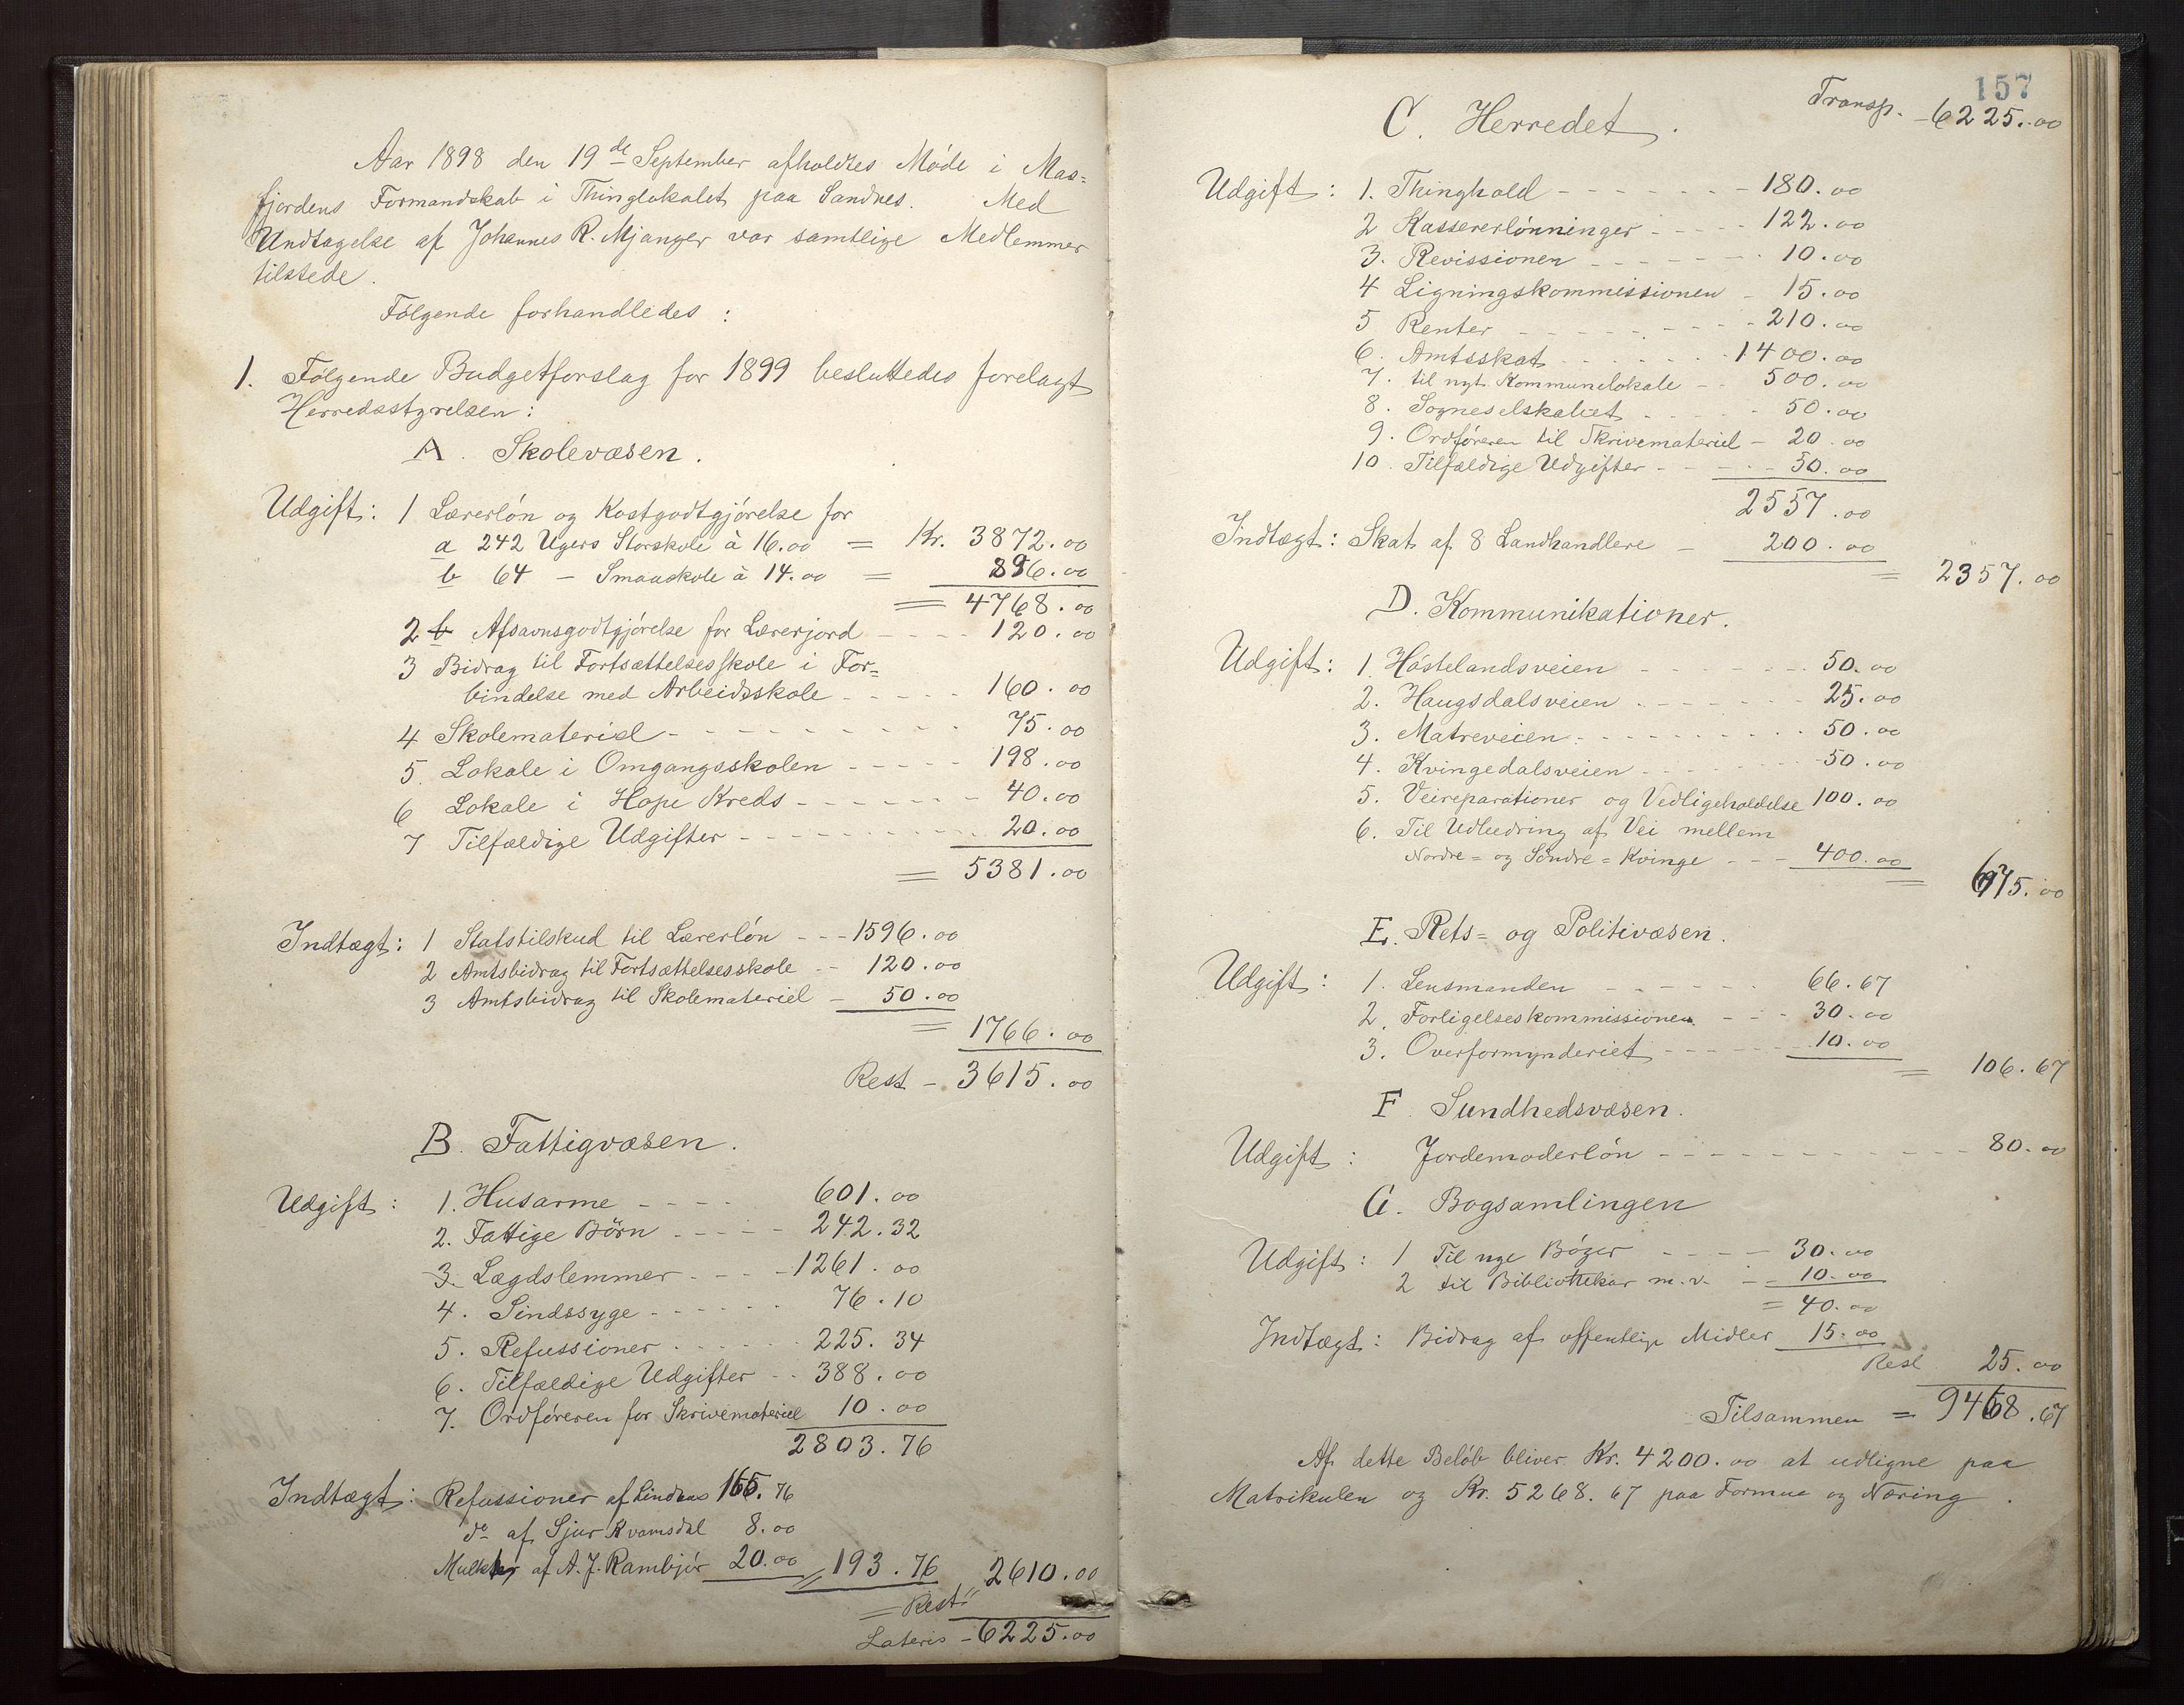 Aar 1898 den 19de September afholdtes Møde i Mas=
fjordens Formandskab i Thinglokalet paa Sandnes. Med
Undtagelse af Johannes R. Mjanger var samtlige Medlemmer
tilstede.
Følgende forhandledes :
1. Følgende Budgetforslag for 1899 besluttedes forelagt
Herredsstyrelsen :
A. Skolevæsen.
Udgift : 1 Lærerløn og Kostgodtgjørelse for
a 242 Ugers Storskole à 16.00 = Kr. 3872.00
b 64 — Smaaskole à 14.00 = 896.00
= 4768.00
2 Afsavnsgodtgjørelse for Lærerjord - - - - 120.00
3 Bidrag til Fortsættelsesskole i For=
bindelse med Arbeidsskole - - - - - 160.00
4 Skolemateriel - - - - - - - - - 75.00
5 Lokale i Omgangsskolen - - - - - 198.00
6 Lokale i Hope Kreds - - - - - - - 40.00
7 Tilfældige Udgifter - - - - - - - - - 20.00
= 5381.00
Indtægt : 1 Statstilskud til Lærerløn - - - 1596.00
2 Amtsbidrag til Fortsættelsesskole - - 120.00
3 Amtsbidrag til Skolemateriel - 50.00
= 1766.00
Rest - 3615.00
B. Fattigvæsen.
Udgift : 1. Husarme - - - - 601.00
2. Fattige Börn - - - - - 242.32
3. Lægdslemmer - - - - 1261.00
4. Sindssyge - - - - - - 76.10
5. Refussioner - - - - - - 225.34
6. Tilfældige Udgifter - - 388.00
7. Ordføreren for Skrivemateriel 10.00
2803.76
Indtægt : Refussioner af Lindaas 165.76
do af Sjur Kvamsdal 8.00
af A. J. Rambjör 20.00 193.76 2610.00
= Rest
Lateris - 6225.00
157
C. Herredet. Transp. - 6225.00
Udgift : 1. Thinghold - - - - - - - 180.00
2 Kassererlønninger - - - - - 122.00
3. Revissionen - - - - - - - 10.00
4 Ligningskommissionen - 15.00
5 Renter - - - - - - - - - 210.00
6. Amtsskat - - - - - - - 1400.00
7. til nyt Kommunelokale - - 500.00
8. Sogneselskabet - - - - - 50.00
9. Ordføreren til Skrivemateriel - 20.00
10. Tilfældige Udgifter - - - - - 50.00
2557.00
Indtægt : Skat af 8 Landhandlere - 200.00
= 2357.00
D. Kommunikationer.
Udgift : 1. Høstelandsveien - - - - - - - 50.00
2. Haugsdalsveien - - - - - - - 25.00
3. Matreveien - - - - - - - - - 50.00
4. Kvingedalsveien - - - - - - - 50.00
5. Veireparationer og Vedligeholdelse 100.00
6. Til Udbedring af Vei mellem
Nordre= og Søndre=Kvinge - - - 400.00
= 675.00
E. Rets= og Politivæsen.
Udgift : 1. Lensmanden - - - - - - 66.67
2. Forligelseskommissionen - - - 30.00
3. Overformynderiet - - - - - - 10.00
= 106.67
F. Sundhedsvæsen.
Udgift : Jordemoderløn - - - - - - - - - - - 80.00
G. Bogsamlingen
Udgift : 1 Til nye Bøger - - - - - 30.00
2 til Bibliothekar m.v. - - 10.00
= 40.00
Indtægt : Bidrag af offentlige Midler 15.00
Rest 25.00
Tilsammen = 9468.67
Af dette Beløb bliver Kr. 4200.00 at udligne paa
Matrikulen og Kr. 5268.67 paa Formue og Næring.